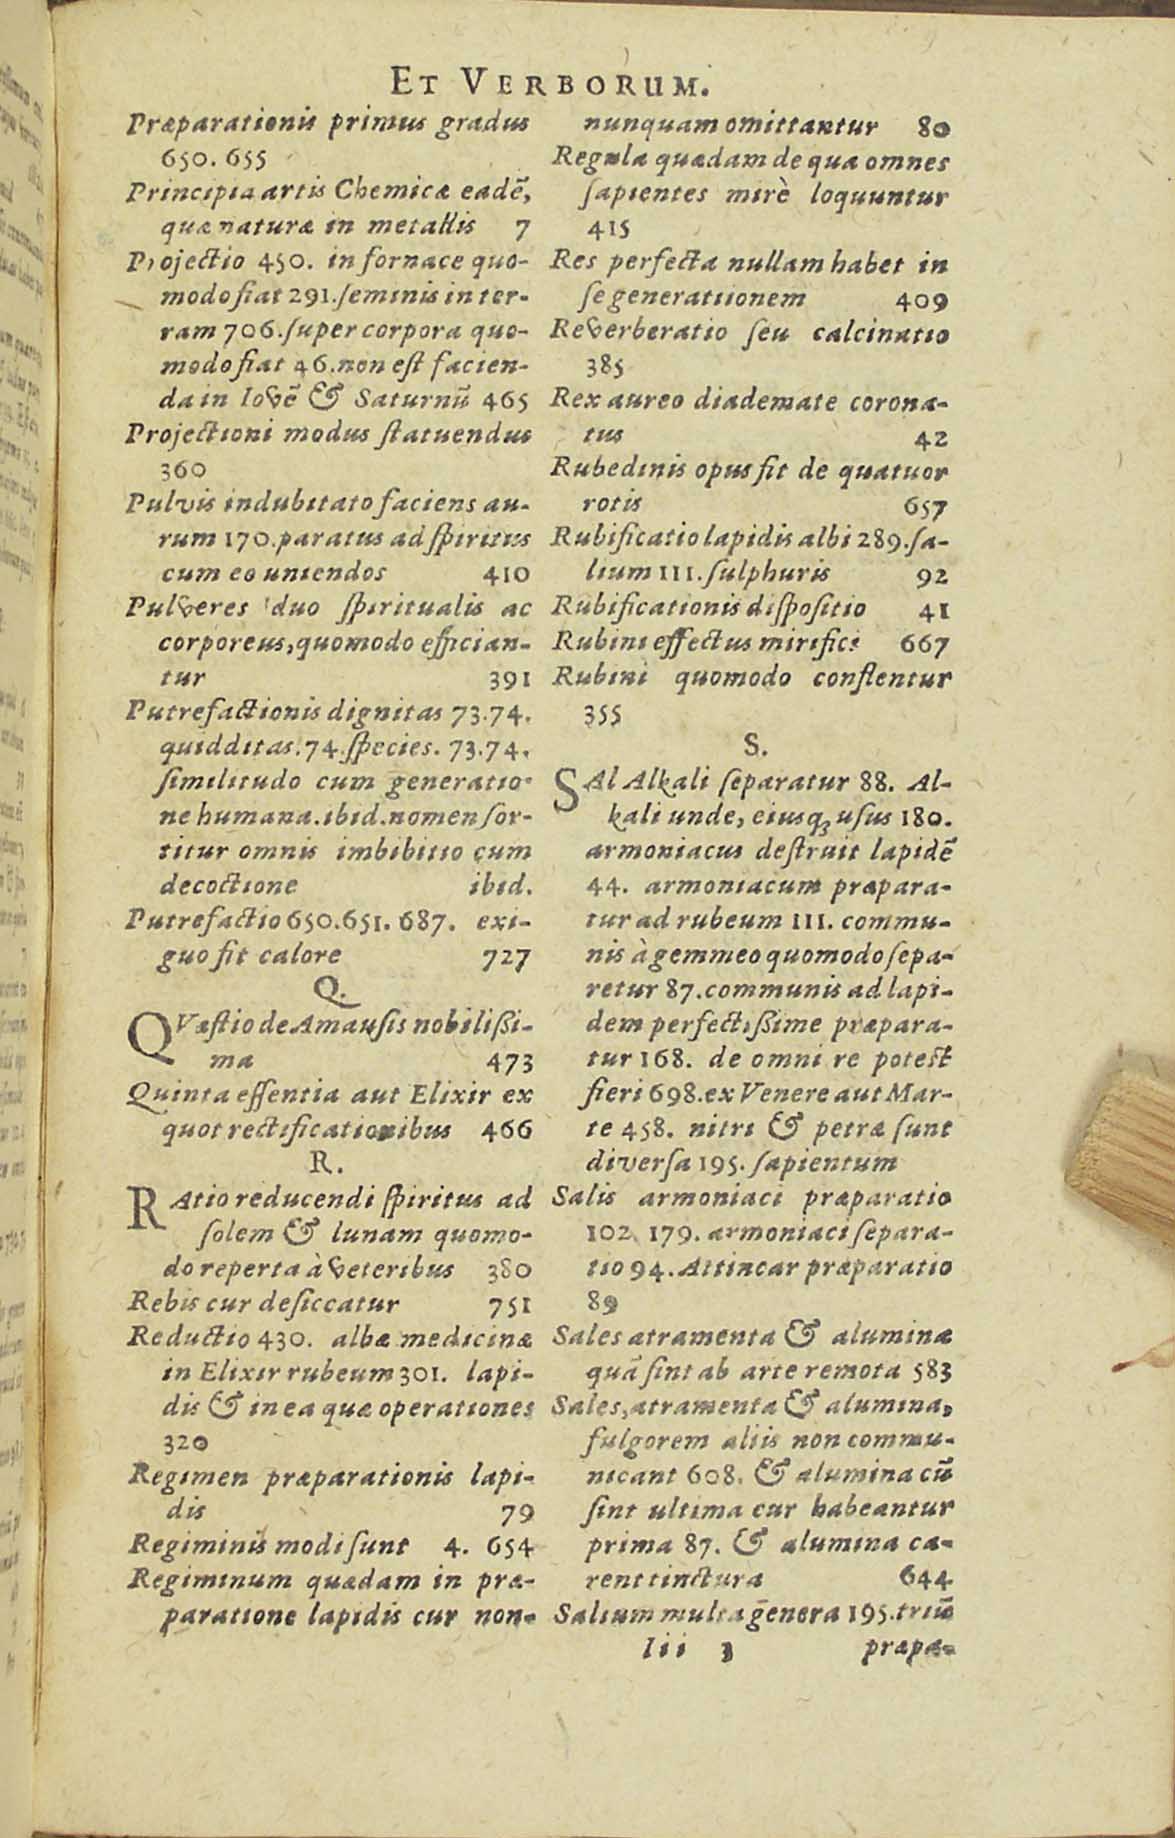 ET VERBORUM.
Præparationis primus gradus
650. 655
Principia artis Chemicæ eadē,
quæ naturæ in metallis 7
Projectio 450. in fornace quo-
modo fiat 291. ſeminis in ter-
ram 706. ſuper corpora quo-
modo fiat 46. non eſt facien-
da in Iovē & Saturnū 465
Projectioni modus ſtatuendus
360
Pulvis indubitato faciens au-
rum 170. paratus ad ſpiritus
cum eo uniendos 410
Pulveres duo ſpiritualis ac
corporeus, quomodo effician-
tur 391
Putrefactionis dignitas 73. 74.
quidditas. 74. ſpecies. 73. 74.
ſimilitudo cum generatio-
ne humana. ibid. nomen ſor-
titur omnis imbibitio cum
decoctione ibid.
Putrefactio 650. 651. 687. exi-
guo fit calore 727
Q.
QVæſtio de Amauſis nobilißi-
ma 473
Quinta eſſentia aut Elixir ex
quot rectificationibus 466
R.
RAtio reducendi ſpiritus ad
ſolem & lunam quomo-
do reperta à veteribus 380
Rebis cur deſiccatur 751
Reductio 430. albæ medicinæ
in Elixir rubeum 301. lapi-
dis & in ea quæ operationes
320
Regimen præparationis lapi-
dis 79
Regiminis modi ſunt 4. 654
Regiminum quædam in præ-
paratione lapidis cur non-
nunquam omittantur 80
Regula quædam de qua omnes
ſapientes mirè loquuntur
415
Res perfecta nullam habet in
ſe generatiionem 409
Reverberatio ſeu calcinatio
385
Rex aureo diademate corona-
tus 42
Rubedinis opus fit de quatuor
rotis 657
Rubificatio lapidis albi 289. ſa-
lium 111. ſulphuris 92
Rubificationis diſpoſitio 41
Rubini effectus mirifici 667
Rubini quomodo conflentur
355
S.
SAl Alkali ſeparatur 88. Al-
kali unde, eiusq; uſus 180.
armoniacus deſtruit lapidē
44. armoniacum præpara-
tur ad rubeum 111. commu-
nis à gemmeo quomodo ſepa-
retur 87. communis ad lapi-
dem perfectißime præpara-
tur 168. de omni re poteſt
fieri 698. ex Venere aut Mar-
te 458. nitri & petræ ſunt
diverſa 195. ſapientum
Salis armoniaci præparatio
102. 179. armoniaci ſepara-
tio 94. Attincar præparatio
89
Sales atramenta & aluminæ
quā ſint ab arte remota 583
Sales, atramenta & alumina,
fulgorem aliis non commu-
nicant 608. & alumina cū
ſint ultima cur habeantur
prima 87. & alumina ca-
rent tinctura 644
Salium multa genera 195. triū
Iii 3 præpa-